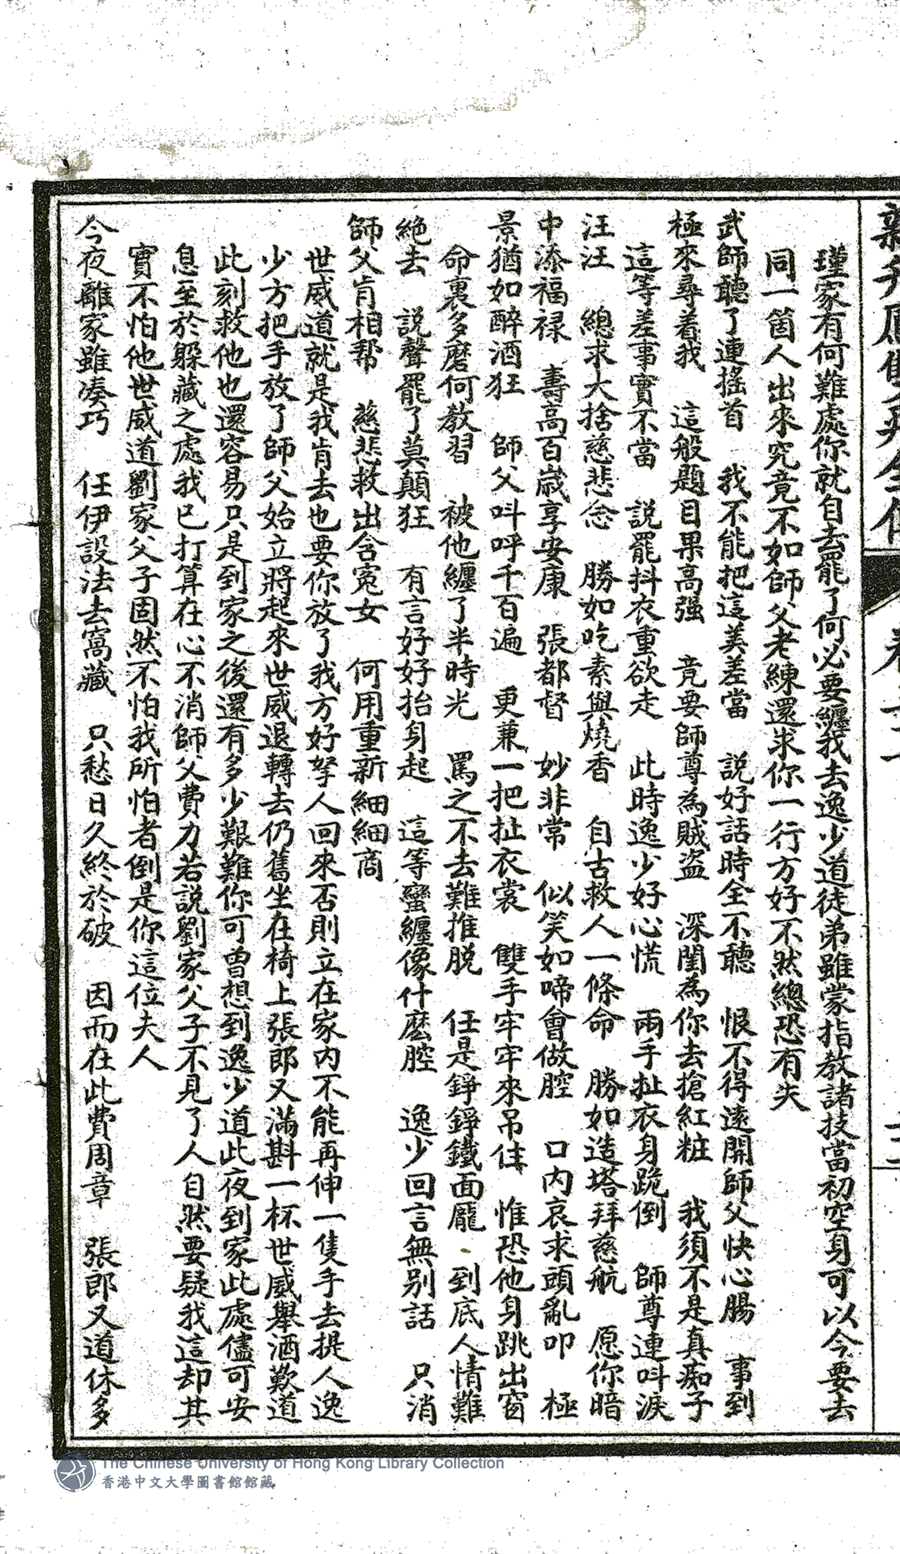 瑾家有何難處你就自去罷了何必要纏我去逸少道徒弟雖蒙指教諸技當初空身可以今要去
同一箇人出來究竟不如師父老練還求你一行方好不然總恐有失
武師聽了連搖首　我不能把這美差當　說好話時全不聽　恨不得遠開師父快心腸　事到
極來尋着我　這般題目果高強　竟要師尊為賊盜　深閨為你去搶紅粧　我須不是真痴子
這等差事實不當　說罷抖衣重欲走　此時逸少好心慌　兩手扯衣身跪倒　師尊連叫淚
汪汪　總求大捨慈悲念　勝如吃素與燒香　自古救人一條命　勝如造塔拜慈航　愿你暗
中添福禄　壽高百歲享安康　張都督　妙非常　似笑如啼會做腔　口內哀求頭亂叩　極
景猶如醉酒狂　師父叫呼千百遍　更兼一把扯衣裳　雙手牢牢來吊住　惟恐他身跳出窗
命裏多磨何教習　被他纏了半時光　罵之不去難推脱　任是錚錚鐵面龐　到底人情難
絶去　說聲罷了莫顛狂　有言好好抬身起　這等蠻纏像什麽腔　逸少回言無别話　只消
師父肯相帮　慈悲救出含寃女　何用重新細細商
世威道就是我肯去也要你放了我方好拏人回來否則立在家內不能再伸一隻手去提人逸
少方把手放了師父始立將起來世威退轉去仍舊坐在椅上張郎又滿斟一杯世威舉酒歎道
此刻救他也還容易只是到家之後還有多少艱難你可曾想到逸少道此夜到家此處儘可安
息至於躲藏之處我已打算在心不消師父費力若說劉家父子不見了人自然要疑我這却其
實不怕他世威道劉家父子固然不怕我所怕者倒是你這位夫人
今夜離家雖凑巧　任伊設法去窩藏　只愁日久終於破　因而在此費周章　張郎又道休多
The Chinese University of Hong Kong Library Collection
香港中文大學圖書館館藏